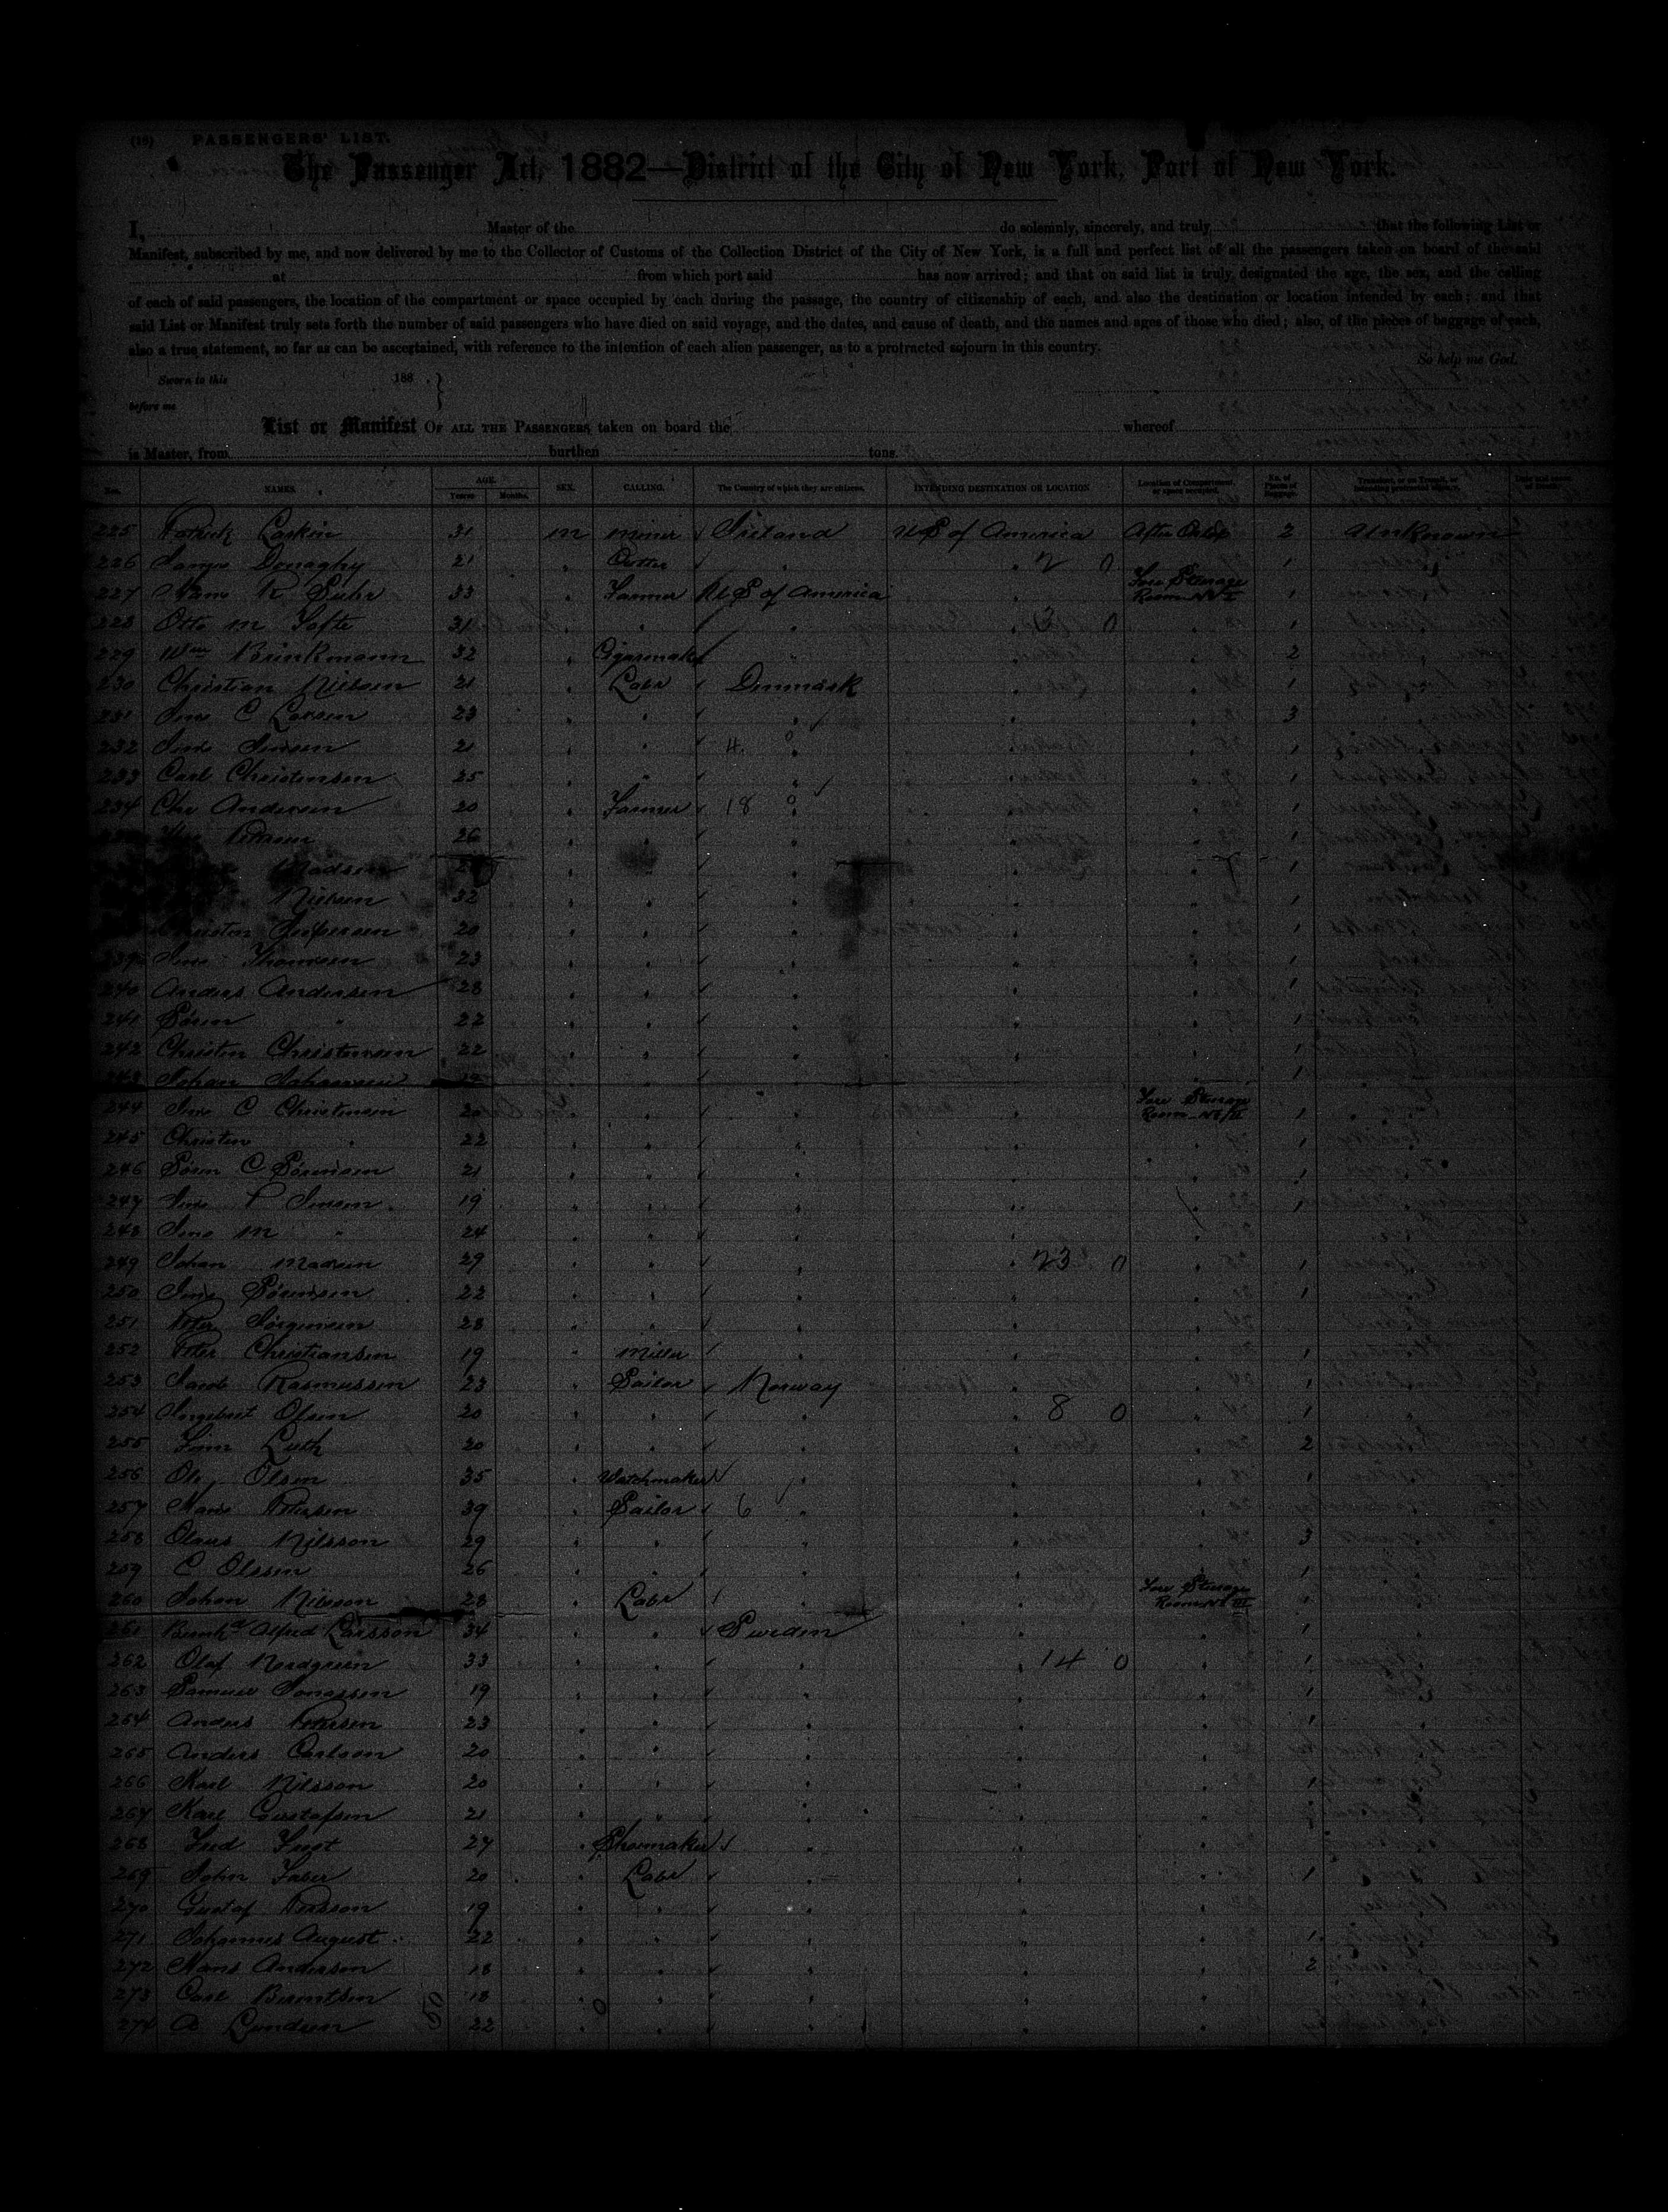 (19) PASSENGERS' LIST.
The Passenger Act, 1882—District of the City of New York, Port of New York.
I, Master of the do solemnly, sincerely, and truly that the following List or
Manifest, subscribed by me, and now delivered by me to the Collector of Customs of the Collection District of the City of New York, is a full and perfect list of all the passengers taken on board of the said
at from which port said has now arrived; and that on said list is truly designated the age, the sex, and the calling
of each of said passengers, the location of the compartment or space occupied by each during the passage, the country of citizenship of each, and also the destination or location intended by each; and that
said List or Manifest truly sets forth the number of said passengers who have died on said voyage, and the dates, and cause of death, and the names and ages of those who died; also, of the pieces of baggage of each,
also a true statement, so far as can be ascertained, with reference to the intention of each alien passenger, as to a protracted sojourn in this country.
So help me God.
Sworn to this 188 . }
before me
List or Manifest OF ALL THE PASSENGERS taken on board the whereof
is Master, from burthen tons
Nos. NAMES. AGE. Years Months. SEX. CALLING. The Country of which they are citizens. INTENDING DESTINATION OR LOCATION Location of Compartment or space occupied. No. of Pieces of Baggage. Transient, or in Transit, or intending protracted sojourn. Date and cause of Death.
225 Patrick Carkin 31 m miner Ireland U S of America After 2 Unknown
226 Donaghy 21 " " " 2 0 1
227 R Suhr 33 " Farmer U S of America " Fore Steerage Room No I 1
228 Otto m Tofte 31 " " " " 3 0 " 1
229 Wm Brinkmann 32 " Cigarmaker " " " 2
230 Christian Nielsen 21 " Labr Denmark " " 1
231 Jens C Larsen 23 " " " " " 3
232 Jens Jensen 21 " " 4 " " " 1
233 Carl Christensen 25 " " " " " 1
234 Chr Andersen 20 " Farmer 18 " " " 1
26 " " " " " 1
Madsen " " " " 1
Nielsen 32 " " " " " 1
Jespersen 20 " " " " " 1
239 Jens Thomsen 23 " " " " " 1
240 Anders Andersen 28 " " " " " 1
241 Sören " 22 " " " " " 1
242 Christen Christensen 22 " " " " " 1
243 Johan Johansen " " " " 1
244 Jens C Christensen 20 " " " " Fore Steerage Room No II 1
245 Christen " 22 " " " " " 1
246 Sören C Sörensen 21 " " " " " 1
247 Jens P Jensen 19 " " " " " 1
248 Jens M " 24 " " " " "
249 Johan Madsen 29 " " " " 23 0 " 1
250 Jens Sörensen 22 " " " " " 1
251 Peter Jörgensen 28 " " " " "
252 Peter Christiansen 19 " Miller " " " 1
253 Jacob Rasmussen 23 " Sailor Norway " " 1
254 Olsen 20 " " " " 8 0 " 1
255 Luth 20 " " " " " 2
256 Ole Olsen 35 " Watchmaker " " " 1
257 Hans Petersen 39 " Sailor 6 " " " 1
258 Olaus Nilsson 29 " " " " " 3
259 C Olssen 26 " " " " " 1
260 Johan Nilsson 28 " Labr " " Fore Steerage Room No III 1
261 Alfred Larsson 34 " " Sweden " " 1
262 Olaf Nordgreen 33 " " " " 14 0 " 1
263 Samuel Jonassen 19 " " " " " 1
264 Anders Petersen 23 " " " " " 1
265 Anders Carlson 20 " " " " "
266 Karl Nilsson 20 " " " " " 1
267 Karl Gustafsen 21 " " " " " 1
268 27 " Shoemaker " " "
269 John Faber 20 " Labr " " " 1
270 Gustaf Persson 19 " " " " "
271 Johannes August 22 " " " " " 1
272 Hans Anderson 18 " " " " " 2
273 Carl Berntsen 18 " " " " "
274 A Lundeen 22 " " " " "
50 0